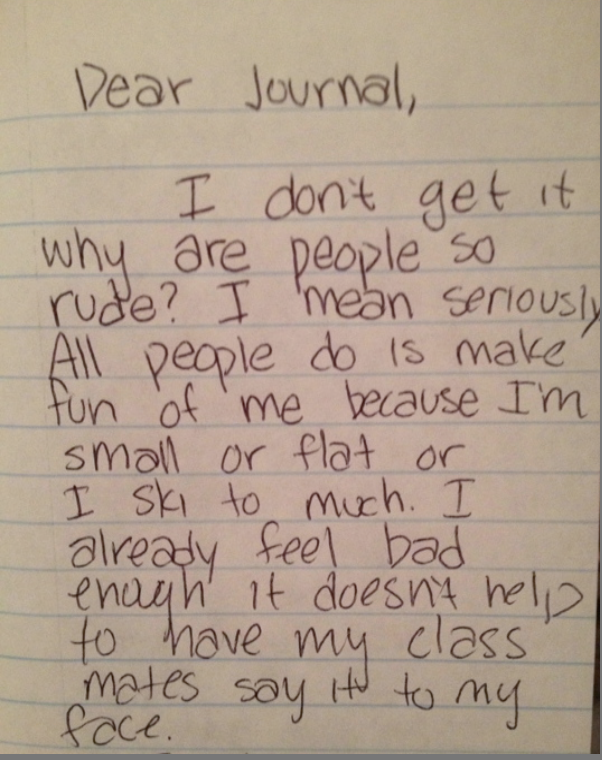 Dear Journal,
I don't get it
why are people so
rude? I mean seriously
All people do is make
fun of me because I'm
small or flat or
I ski to much. I
already feel bad
enugh it doesn't help
to have my class
mates say it to my
face.